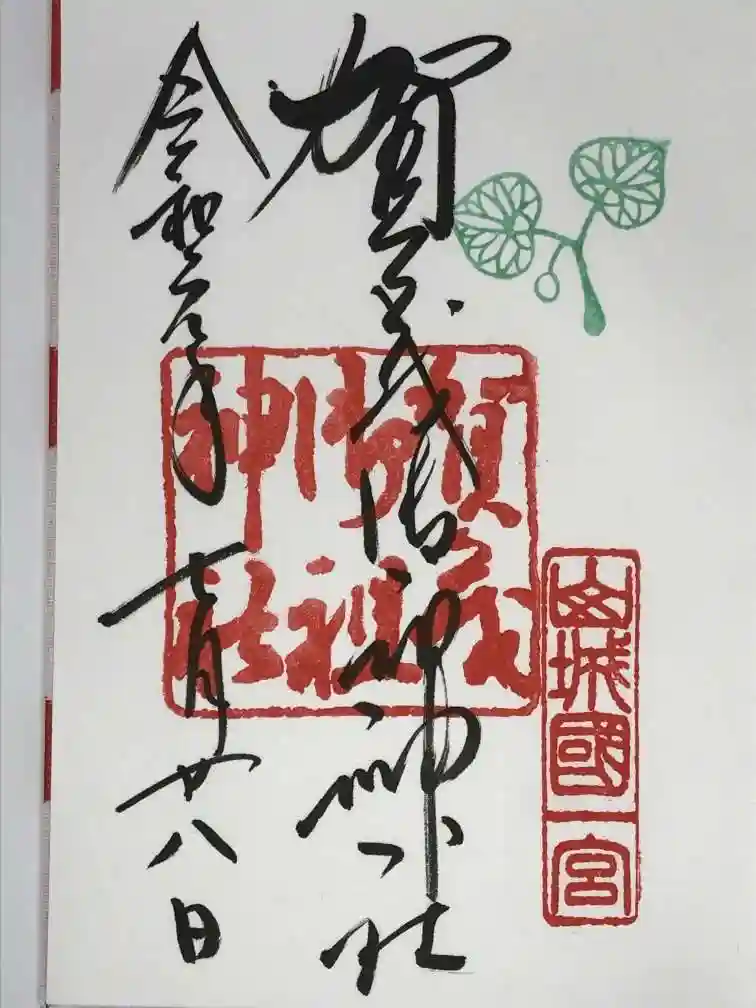 山城國一宮
賀茂御祖神社
賀茂御祖神社
令和二年七月廿八日